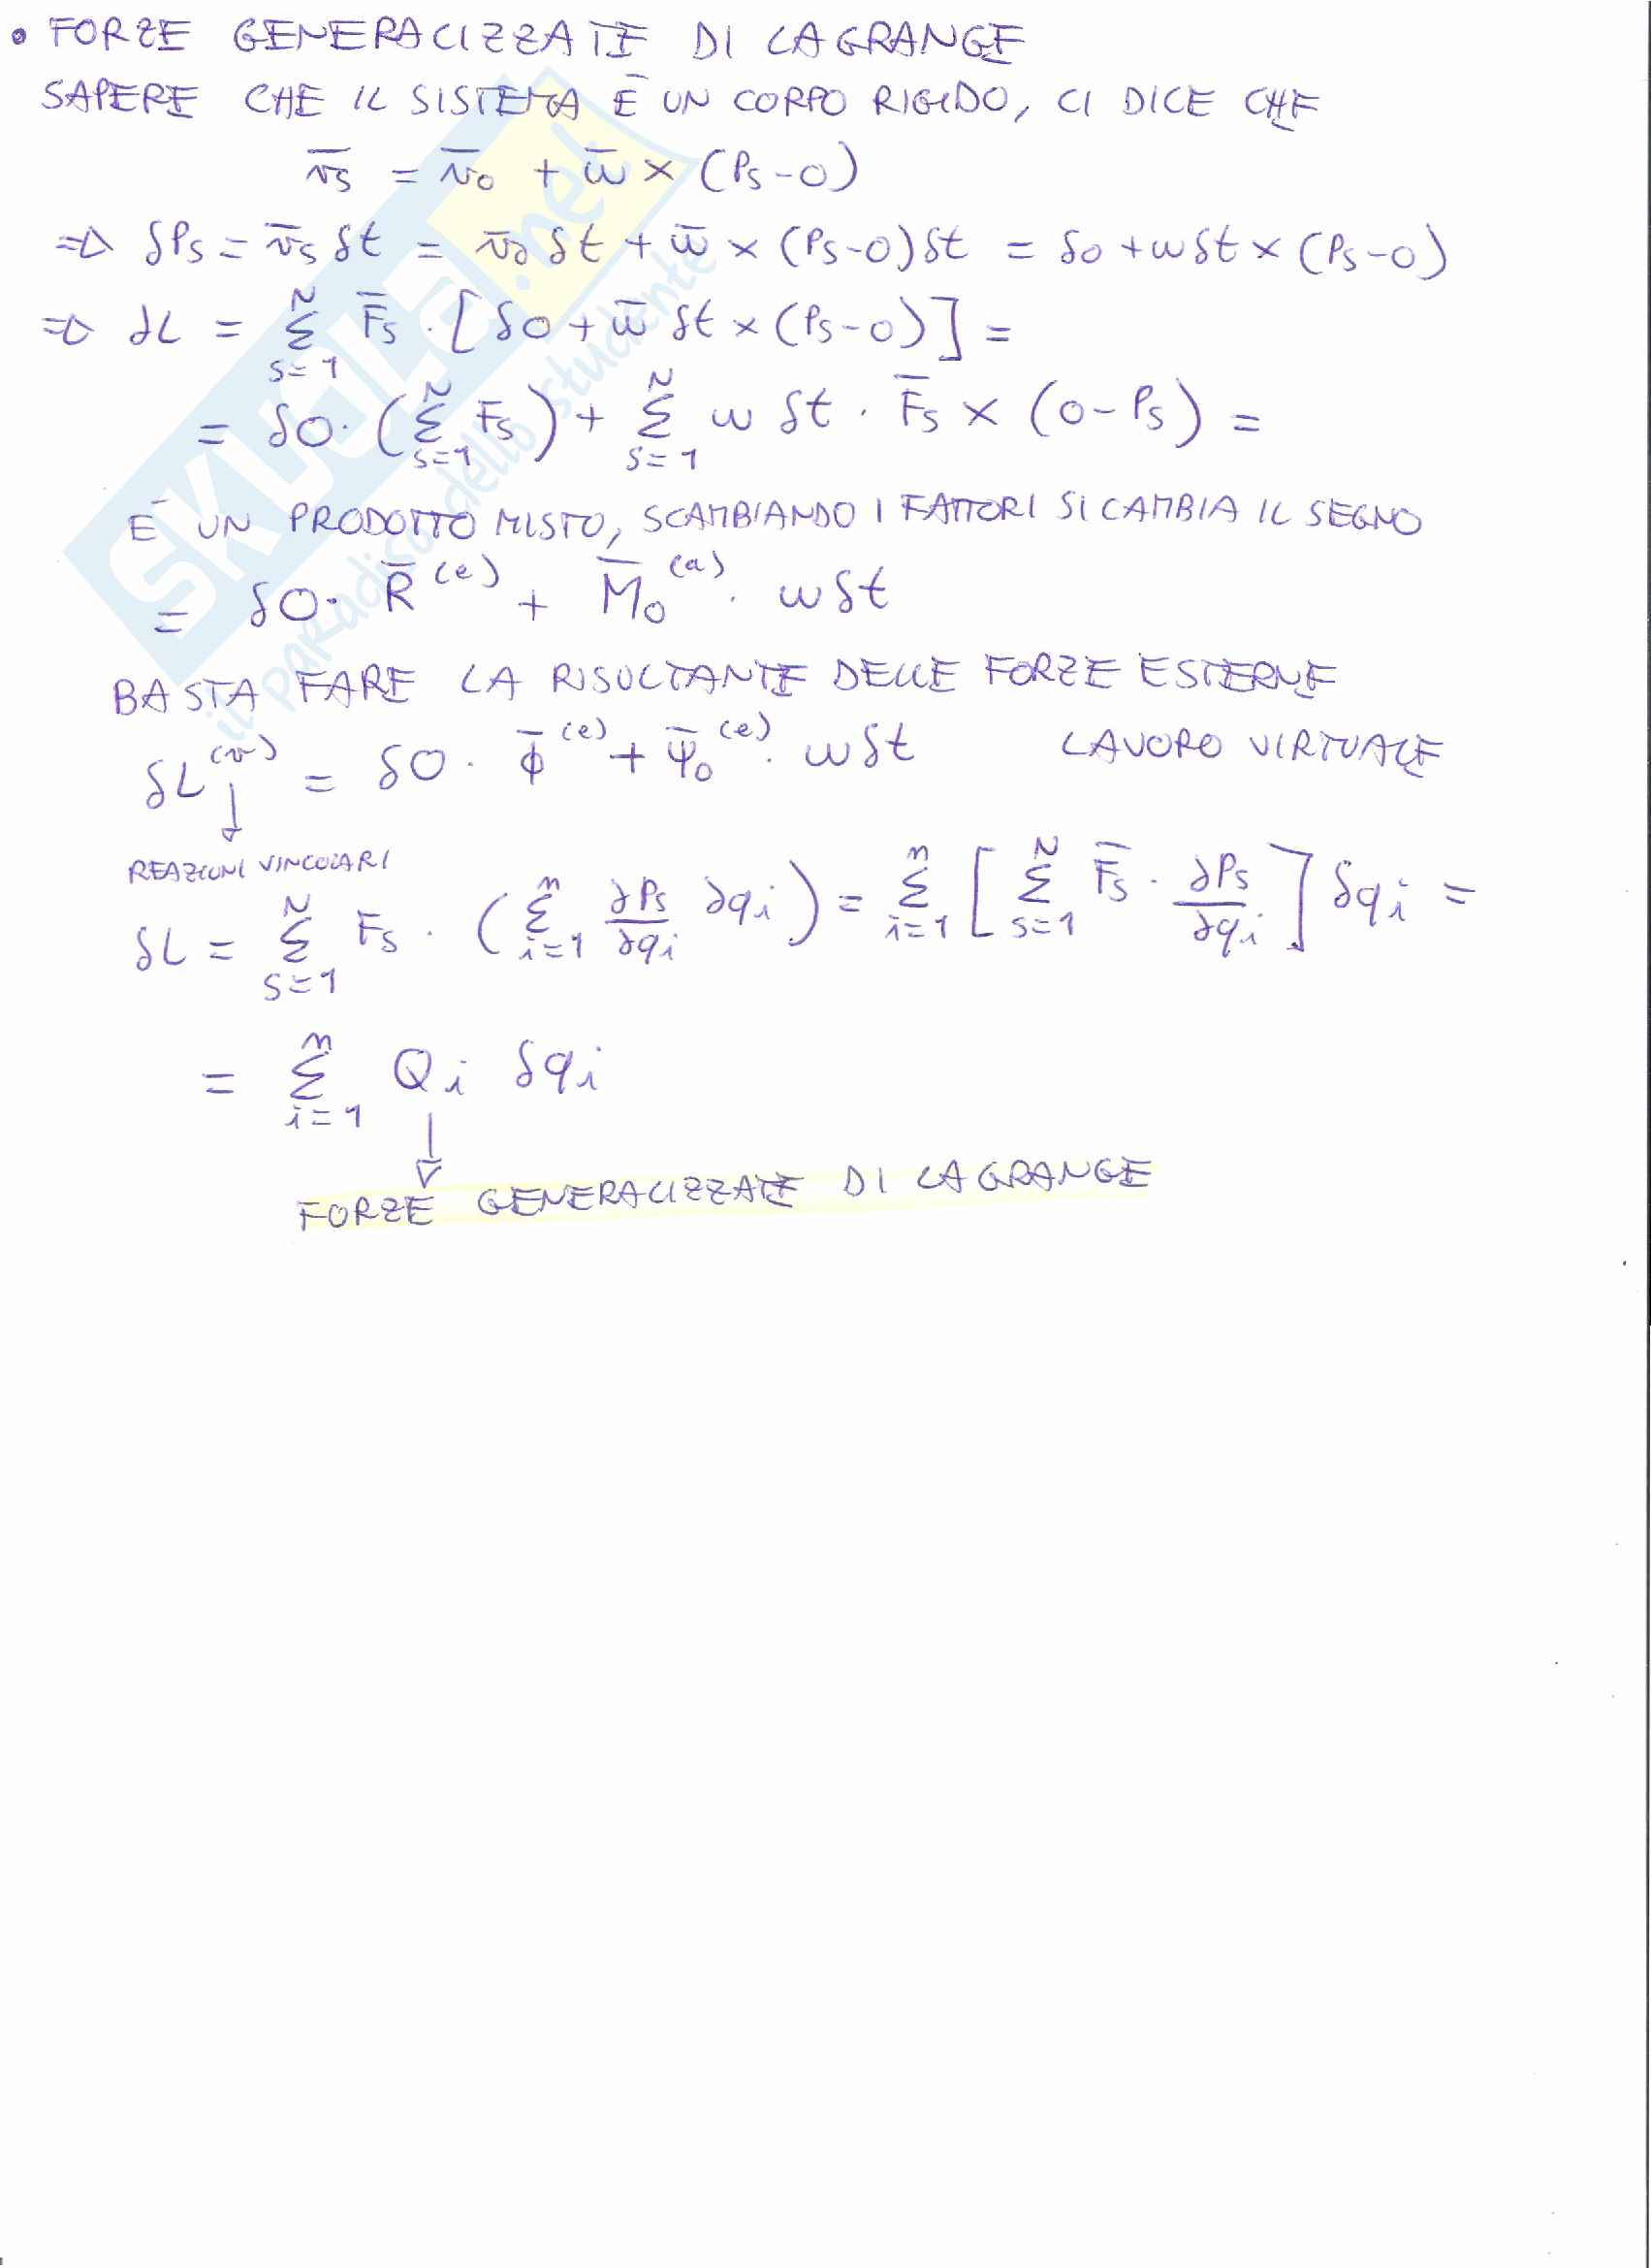 • FORZE GENERALIZZATE DI LAGRANGE
SAPERE CHE IL SISTEMA È UN CORPO RIGIDO, CI DICE CHE
v̄s = v̄o + ω̄ × (Ps-O)
⇒ δPs = v̄s δt = v̄o δt + ω̄ × (Ps-O)δt = δo + ωδt × (Ps-O)
⇒ ∂L = Σ_{s=1}^{N} F̄s · [δO + ω̄ δt × (Ps-O)] =
= δO · (Σ_{s=1}^{N} F̄s) + Σ_{s=1}^{N} ω δt · F̄s × (O-Ps) =
È UN PRODOTTO MISTO, SCAMBIANDO I FATTORI SI CAMBIA IL SEGNO
= δO · R̄^(e) + M̄o^(a) · ωδt
BASTA FARE LA RISULTANTE DELLE FORZE ESTERNE
δL^(v) = δO · ϕ̄^(e) + ψ̄o^(e) · ωδt LAVORO VIRTUALE
REAZIONI VINCOLARI
δL = Σ_{s=1}^{N} Fs · (Σ_{i=1}^{n} ∂Ps/∂qi ∂qi) = Σ_{i=1}^{n} [Σ_{s=1}^{N} F̄s · ∂Ps/∂qi] δqi =
= Σ_{i=1}^{n} Qi δqi
FORZE GENERALIZZATE DI LAGRANGE
SKUOLA.net
il paradiso dello studente